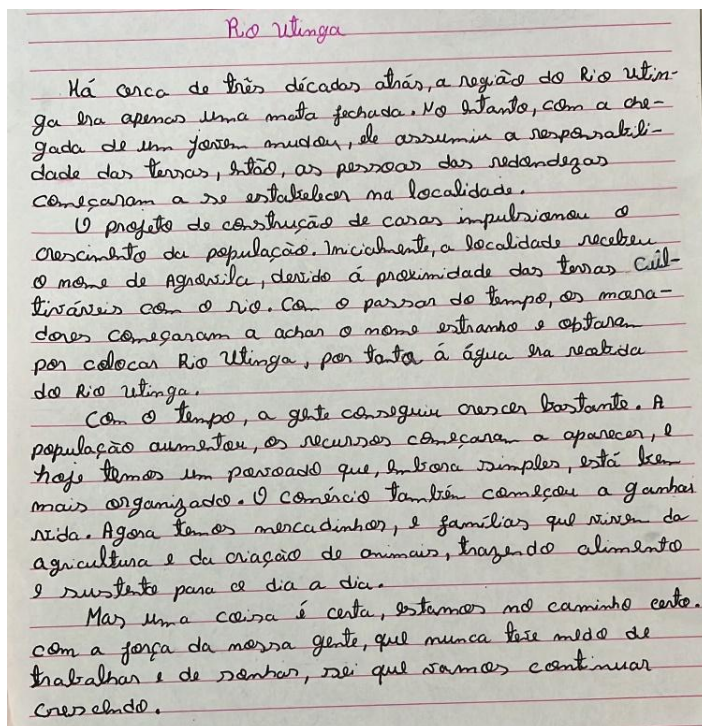 Rio Utinga
Há cerca de três décadas atrás, a região do Rio Utin-
ga era apenas uma mata fechada. No entanto, com a che-
gada de um jovem mudou, ele assumiu a responsabili-
dade das terras, então, as pessoas das redondezas
começaram a se estabelecer na localidade.
O projeto de construção de casas impulsionou o
crescimento da população. Inicialmente, a localidade recebeu
o nome de Agrovila, devido á proximidade das terras cul-
tiváveis com o rio. Com o passar do tempo, os mora-
dores começaram a achar o nome estranho e optaram
por colocar Rio Utinga, por tanto á água era recebida
do Rio Utinga.
Com o tempo, a gente conseguiu crescer bastante. A
população aumentou, os recursos começaram a aparecer, e
hoje temos um povoado que, embora simples, está bem
mais organizado. O comércio também começou a ganhar
vida. Agora temos mercadinhos, e famílias que vivem da
agricultura e da criação de animais, trazendo alimento
e sustento para o dia a dia.
Mas uma coisa é certa, estamos no caminho certo.
com a força da nossa gente, que nunca teve medo de
trabalhar e de sonhar, sei que vamos continuar
crescendo.